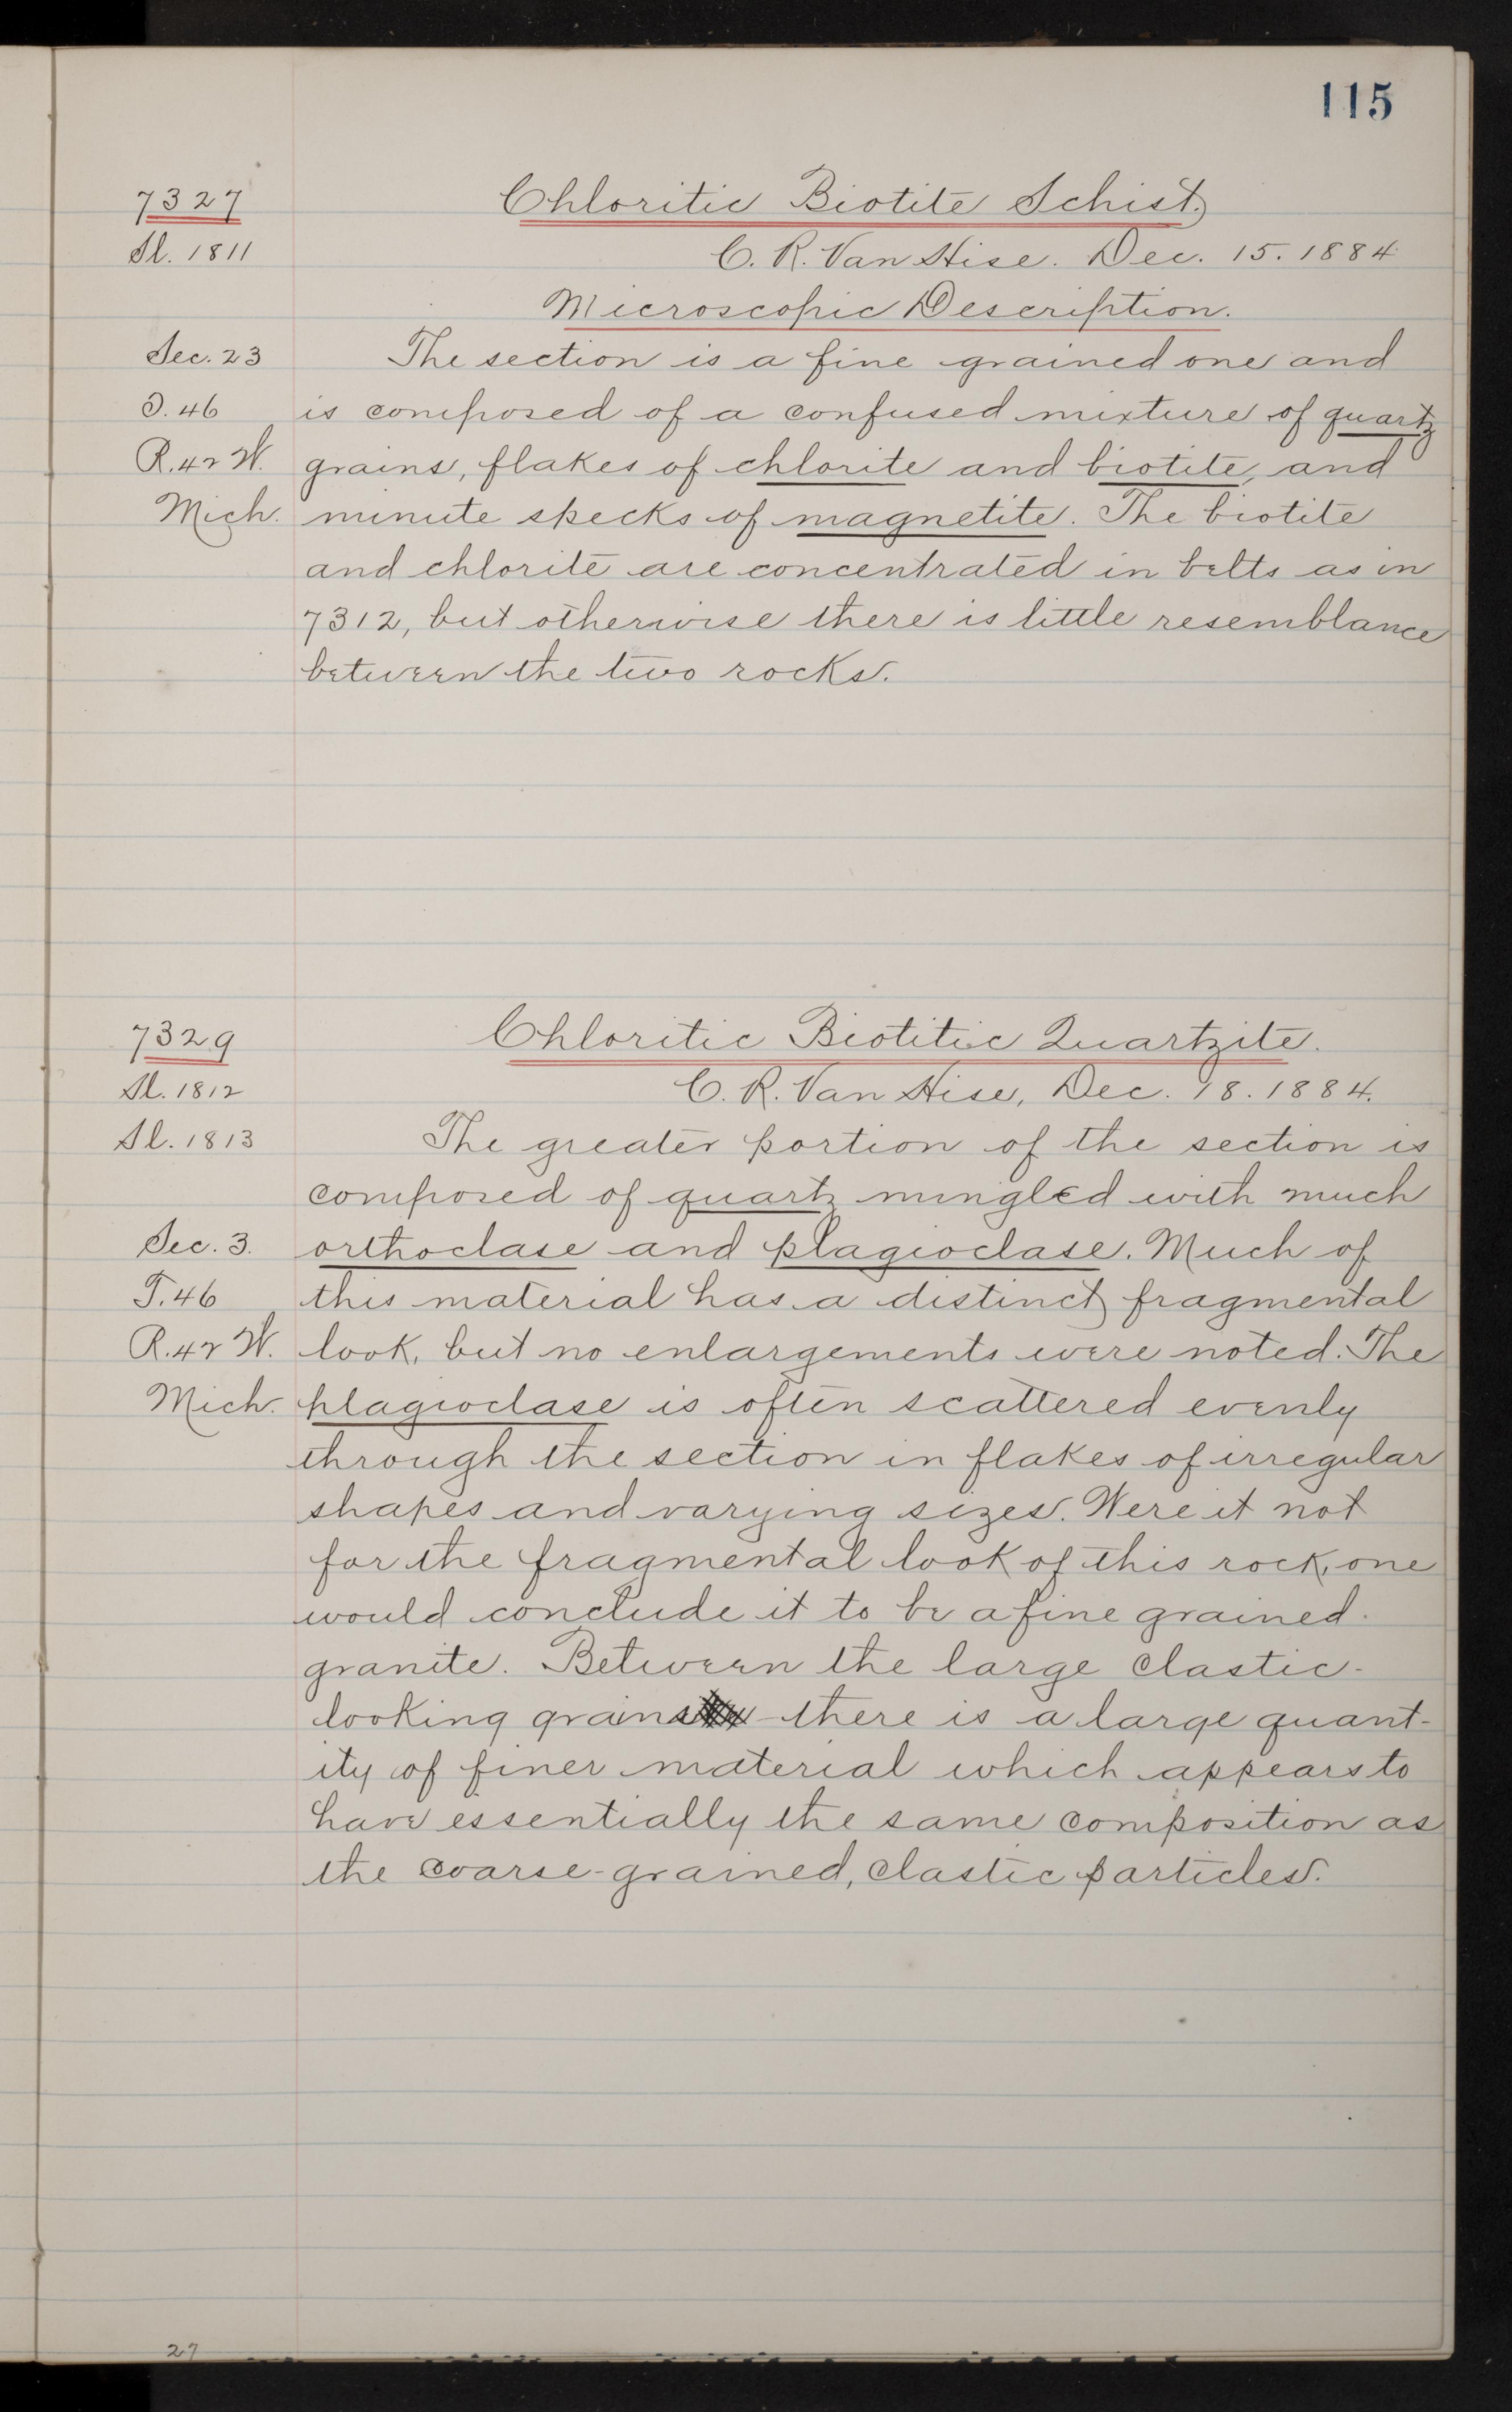 115
7327
Chloritic Biotite Schist.
Sl. 1811
C. R. Van Hise. Dec. 15. 1884
Microscopic Description.
Sec. 23
The section is a fine grained one and
T. 46
is composed of a confused mixture of quartz
R. 42 W.
grains, flakes of chlorite and biotite, and
Mich.
minute specks of magnetite. The biotite
and chlorite are concentrated in belts as in
7312, but otherwise there is little resemblance
between the two rocks.
7329
Chloritic Biotitic Quartzite.
Sl. 1812
C. R. Van Hise, Dec. 18. 1884.
Sl. 1813
The greater portion of the section is
composed of quartz mingled with much
Sec. 3.
orthoclase and plagioclase. Much of
T. 46
this material has a distinct fragmental
R. 42 W.
look, but no enlargements were noted. The
Mich.
plagioclase is often scattered evenly
through the section in flakes of irregular
shapes and varying sizes. Were it not
for the fragmental look of this rock, one
would conclude it to be a fine grained
granite. Between the large clastic-
looking grains there is a large quant-
ity of finer material which appears to
have essentially the same composition as
the coarse-grained, clastic particles.
27